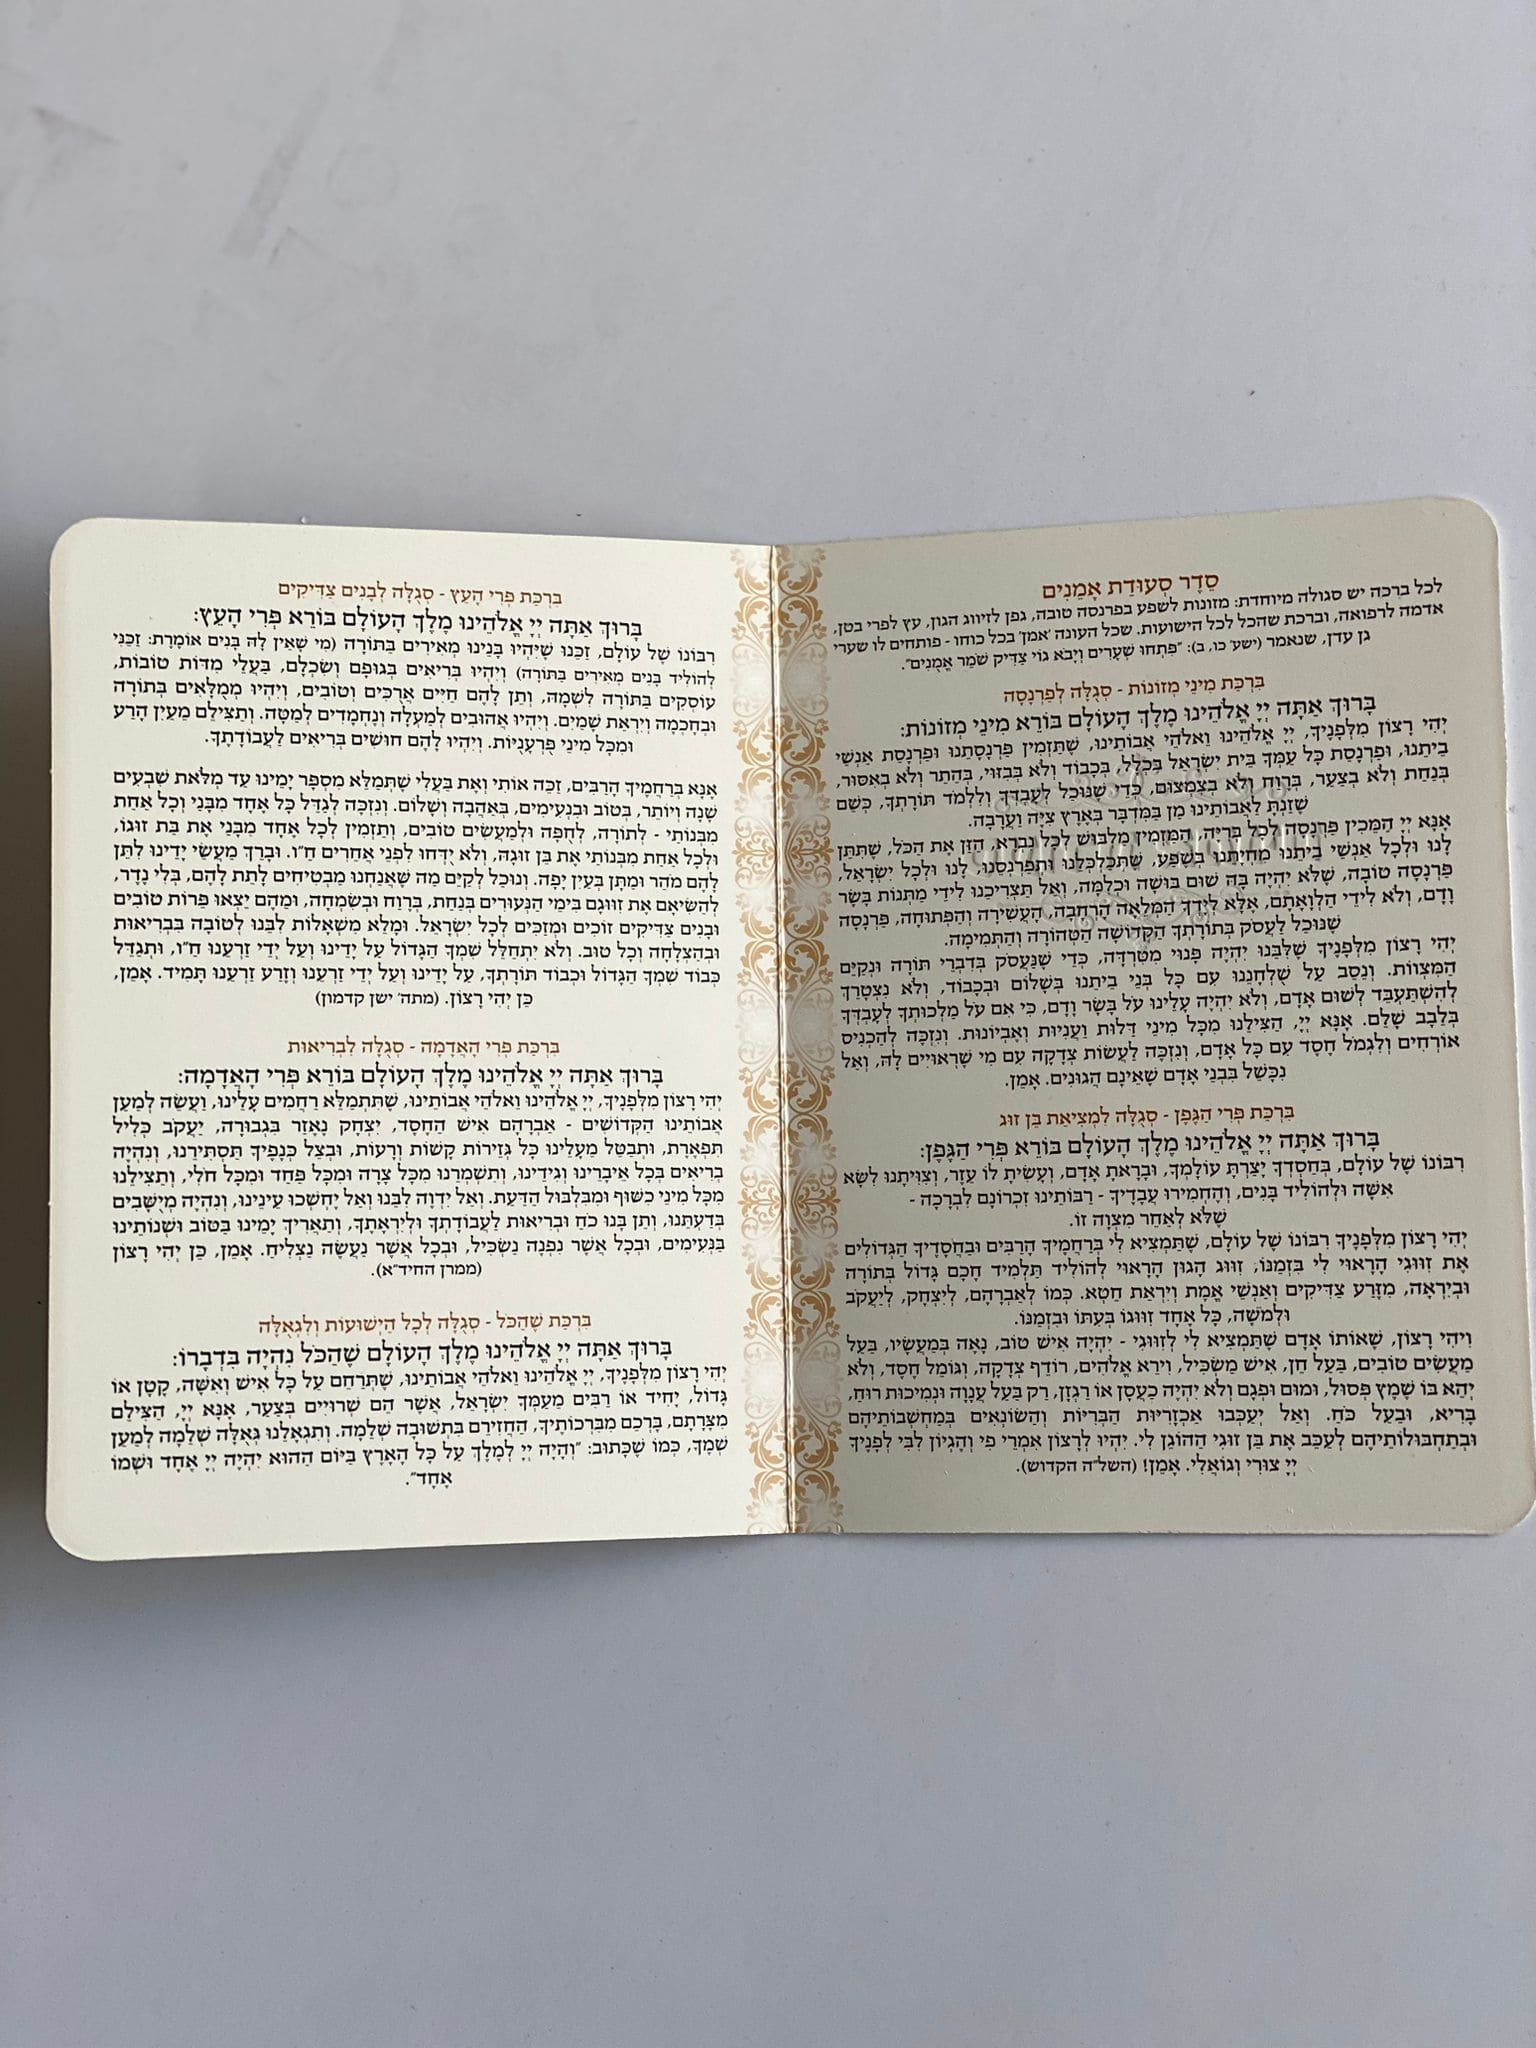 סֵדֶר סְעוּדַת אָמֵנִים
לכל ברכה יש סגולה מיוחדת: מזונות לשפע בפרנסה טובה, גפן לזיווג הגון, עץ לפרי בטן,
אדמה לרפואה, וברכת שהכל לכל הישועות. שכל העונה 'אמן' בכל כוחו - פותחים לו שערי
גן עדן, שנאמר (ישע' כו, ב): "פִּתְחוּ שְׁעָרִים וְיָבֹא גוֹי צַדִּיק שֹׁמֵר אֱמֻנִים".
בִּרְכַּת מִינֵי מְזוֹנוֹת - סְגֻלָּה לְפַרְנָסָה
בָּרוּךְ אַתָּה יְיָ אֱלֹהֵינוּ מֶלֶךְ הָעוֹלָם בּוֹרֵא מִינֵי מְזוֹנוֹת:
יְהִי רָצוֹן מִלְּפָנֶיךָ, יְיָ אֱלֹהֵינוּ וֵאלֹהֵי אֲבוֹתֵינוּ, שֶׁתַּזְמִין פַּרְנָסָתֵנוּ וּפַרְנָסַת אַנְשֵׁי
בֵיתֵנוּ, וּפַרְנָסַת כָּל עַמְּךָ בֵּית יִשְׂרָאֵל בִּכְלָל, בְּכָבוֹד וְלֹא בְּבִזּוּי, בְּהֶתֵּר וְלֹא בְּאִסּוּר,
בְּנַחַת וְלֹא בְצַעַר, בְּרֶוַח וְלֹא בְצִמְצוּם, כְּדֵי שֶׁנּוּכַל לְעָבְדְּךָ וְלִלְמֹד תּוֹרָתְךָ, כְּשֵׁם
שֶׁזַּנְתָּ לַאֲבוֹתֵינוּ מָן בַּמִּדְבָּר בְּאֶרֶץ צִיָּה וַעֲרָבָה.
אָנָּא יְיָ הַמֵּכִין פַּרְנָסָה לְכָל בְּרִיָּה, הַמַּזְמִין מַלְבּוּשׁ לְכָל נִבְרָא, הַזָּן אֶת הַכֹּל, שֶׁתִּתֵּן
לָנוּ וּלְכָל אַנְשֵׁי בֵיתֵנוּ מִחְיָתֵנוּ בְּשֶׁפַע, שֶׁתְּכַלְכְּלֵנוּ וּתְפַרְנְסֵנוּ, לָנוּ וּלְכָל יִשְׂרָאֵל,
פַּרְנָסָה טוֹבָה, שֶׁלֹּא יִהְיֶה בָּהּ שׁוּם בּוּשָׁה וּכְלִמָּה, וְאַל תַּצְרִיכֵנוּ לִידֵי מַתְּנוֹת בָּשָׂר
וָדָם, וְלֹא לִידֵי הַלְוָאָתָם, אֶלָּא לְיָדְךָ הַמְּלֵאָה הָרְחָבָה, הָעֲשִׁירָה וְהַפְּתוּחָה, פַּרְנָסָה
שֶׁנּוּכַל לַעֲסֹק בְּתוֹרָתְךָ הַקְּדוֹשָׁה הַטְּהוֹרָה וְהַתְּמִימָה.
יְהִי רָצוֹן מִלְּפָנֶיךָ שֶׁלִּבֵּנוּ יִהְיֶה פָּנוּי מִטִּרְדָּה, כְּדֵי שֶׁנַּעֲסֹק בְּדִבְרֵי תוֹרָה וּנְקַיֵּם
הַמִּצְוֹת. וְנֵסֵב עַל שֻׁלְחָנֵנוּ עִם כָּל בְּנֵי בֵיתֵנוּ בְּשָׁלוֹם וּבְכָבוֹד, וְלֹא נִצְטָרֵךְ
לְהִשְׁתַּעְבֵּד לְשׁוּם אָדָם, וְלֹא יִהְיֶה עָלֵינוּ עֹל בָּשָׂר וָדָם, כִּי אִם עֹל מַלְכוּתְךָ לְעָבְדְּךָ
בְּלֵבָב שָׁלֵם. אָנָּא יְיָ, הַצִּילֵנוּ מִכָּל מִינֵי דַלּוּת וַעֲנִיּוּת וְאֶבְיוֹנוּת. וְנִזְכֶּה לְהַכְנִיס
אוֹרְחִים וְלִגְמֹל חֶסֶד עִם כָּל אָדָם, וְנִזְכֶּה לַעֲשׂוֹת צְדָקָה עִם מִי שֶׁרְאוּיִים לָהּ, וְאַל
נִכָּשֵׁל בִּבְנֵי אָדָם שֶׁאֵינָם הֲגוּנִים. אָמֵן.
בִּרְכַּת פְּרִי הַגֶּפֶן - סְגֻלָּה לִמְצִיאַת בֶּן זוּג
בָּרוּךְ אַתָּה יְיָ אֱלֹהֵינוּ מֶלֶךְ הָעוֹלָם בּוֹרֵא פְּרִי הַגֶּפֶן:
רִבּוֹנוֹ שֶׁל עוֹלָם, בְּחַסְדְּךָ יָצַרְתָּ עוֹלָמְךָ, וּבָרָאתָ אָדָם, וְעָשִׂיתָ לוֹ עֵזֶר, וְצִוִּיתָנוּ לִשָּׂא
אִשָּׁה וּלְהוֹלִיד בָּנִים, וְהֶחְמִירוּ עֲבָדֶיךָ - רַבּוֹתֵינוּ זִכְרוֹנָם לִבְרָכָה -
שֶׁלֹּא לְאַחֵר מִצְוָה זוֹ.
יְהִי רָצוֹן מִלְּפָנֶיךָ רִבּוֹנוֹ שֶׁל עוֹלָם, שֶׁתַּמְצִיא לִי בְּרַחֲמֶיךָ הָרַבִּים וּבַחֲסָדֶיךָ הַגְּדוֹלִים
אֶת זִוּוּגִי הָרָאוּי לִי בִּזְמַנּוֹ, זִוּוּג הָגוּן הָרָאוּי לְהוֹלִיד תַּלְמִיד חָכָם גָּדוֹל בְּתוֹרָה
וּבְיִרְאָה, מִזֶּרַע צַדִּיקִים וְאַנְשֵׁי אֱמֶת וְיִרְאַת חֵטְא. כְּמוֹ לְאַבְרָהָם, לְיִצְחָק, לְיַעֲקֹב
וּלְמֹשֶׁה, כָּל אֶחָד זִוּוּגוֹ בְּעִתּוֹ וּבִזְמַנּוֹ.
וִיהִי רָצוֹן, שֶׁאוֹתוֹ אָדָם שֶׁתַּמְצִיא לִי לְזִוּוּגִי - יִהְיֶה אִישׁ טוֹב, נָאֶה בְּמַעֲשָׂיו, בַּעַל
מַעֲשִׂים טוֹבִים, בַּעַל חֵן, אִישׁ מַשְׂכִּיל, וִירֵא אֱלֹהִים, רוֹדֵף צְדָקָה, וְגוֹמֵל חֶסֶד, וְלֹא
יְהֵא בוֹ שֶׁמֶץ פְּסוּל, וּמוּם וּפְגָם וְלֹא יִהְיֶה כַעֲסָן אוֹ רַגְזָן, רַק בַּעַל עֲנָוָה וּנְמִיכוּת רוּחַ,
בָּרִיא, וּבַעַל כֹּחַ. וְאַל יְעַכְּבוּ אַכְזָרִיּוּת הַבְּרִיּוֹת וְהַשּׂוֹנְאִים בְּמַחְשְׁבוֹתֵיהֶם
וּבְתַחְבּוּלוֹתֵיהֶם לְעַכֵּב אֶת בֶּן זוּגִי הַהוֹגֵן לִי. יִהְיוּ לְרָצוֹן אִמְרֵי פִי וְהֶגְיוֹן לִבִּי לְפָנֶיךָ
יְיָ צוּרִי וְגוֹאֲלִי. אָמֵן! (השל"ה הקדוש).
בִּרְכַּת פְּרִי הָעֵץ - סְגֻלָּה לְבָנִים צַדִּיקִים
בָּרוּךְ אַתָּה יְיָ אֱלֹהֵינוּ מֶלֶךְ הָעוֹלָם בּוֹרֵא פְּרִי הָעֵץ:
רִבּוֹנוֹ שֶׁל עוֹלָם, זַכֵּנוּ שֶׁיִּהְיוּ בָּנֵינוּ מְאִירִים בַּתּוֹרָה (מִי שֶׁאֵין לָהּ בָּנִים אוֹמֶרֶת: זַכֵּנִי
לְהוֹלִיד בָּנִים מְאִירִים בַּתּוֹרָה) וְיִהְיוּ בְּרִיאִים בְּגוּפָם וְשִׂכְלָם, בַּעֲלֵי מִדּוֹת טוֹבוֹת,
עוֹסְקִים בַּתּוֹרָה לִשְׁמָהּ, וְתֵן לָהֶם חַיִּים אֲרֻכִּים וְטוֹבִים, וְיִהְיוּ מְמֻלָּאִים בְּתוֹרָה
וּבְחָכְמָה וְיִרְאַת שָׁמַיִם. וְיִהְיוּ אֲהוּבִים לְמַעְלָה וְנֶחְמָדִים לְמַטָּה. וְתַצִּילֵם מֵעַיִן הָרַע
וּמִכָּל מִינֵי פֻּרְעָנֻיּוֹת. וְיִהְיוּ לָהֶם חוּשִׁים בְּרִיאִים לַעֲבוֹדָתֶךָ.
אָנָּא בְּרַחֲמֶיךָ הָרַבִּים, זַכֵּה אוֹתִי וְאֶת בַּעֲלִי שֶׁתְּמַלֵּא מִסְפַּר יָמֵינוּ עַד מְלֹאת שִׁבְעִים
שָׁנָה וְיוֹתֵר, בְּטוֹב וּבִנְעִימִים, בְּאַהֲבָה וְשָׁלוֹם. וְנִזְכֶּה לְגַדֵּל כָּל אֶחָד מִבָּנַי וְכָל אַחַת
מִבְּנוֹתַי - לְתוֹרָה, לְחֻפָּה וּלְמַעֲשִׂים טוֹבִים, וְתַזְמִין לְכָל אֶחָד מִבָּנַי אֶת בַּת זוּגוֹ,
וּלְכָל אַחַת מִבְּנוֹתַי אֶת בֶּן זוּגָהּ, וְלֹא יִדָּחוּ לִפְנֵי אֲחֵרִים ח"ו. וּבָרֵךְ מַעֲשֵׂי יָדֵינוּ לִתֵּן
לָהֶם מֹהַר וּמַתָּן בְּעַיִן יָפָה. וְנוּכַל לְקַיֵּם מַה שֶּׁאֲנַחְנוּ מַבְטִיחִים לָתֵת לָהֶם, בְּלִי נֶדֶר,
לְהַשִּׂיאָם אֶת זִוּוּגָם בִּימֵי הַנְּעוּרִים בְּנַחַת, בְּרֶוַח וּבְשִׂמְחָה, וּמֵהֶם יֵצְאוּ פֵּרוֹת טוֹבִים
וּבָנִים צַדִּיקִים זוֹכִים וּמְזַכִּים לְכָל יִשְׂרָאֵל. וּמַלֵּא מִשְׁאֲלוֹת לִבֵּנוּ לְטוֹבָה בִּבְרִיאוּת
וּבְהַצְלָחָה וְכָל טוּב. וְלֹא יִתְחַלֵּל שִׁמְךָ הַגָּדוֹל עַל יָדֵינוּ וְעַל יְדֵי זַרְעֵנוּ ח"ו, וּתְגַדֵּל
כְּבוֹד שִׁמְךָ הַגָּדוֹל וּכְבוֹד תּוֹרָתְךָ, עַל יָדֵינוּ וְעַל יְדֵי זַרְעֵנוּ וְזֶרַע זַרְעֵנוּ תָּמִיד. אָמֵן,
כֵּן יְהִי רָצוֹן. (מתה' ישן קדמון)
בִּרְכַּת פְּרִי הָאֲדָמָה - סְגֻלָּה לִבְרִיאוּת
בָּרוּךְ אַתָּה יְיָ אֱלֹהֵינוּ מֶלֶךְ הָעוֹלָם בּוֹרֵא פְּרִי הָאֲדָמָה:
יְהִי רָצוֹן מִלְּפָנֶיךָ, יְיָ אֱלֹהֵינוּ וֵאלֹהֵי אֲבוֹתֵינוּ, שֶׁתִּתְמַלֵּא רַחֲמִים עָלֵינוּ, וַעֲשֵׂה לְמַעַן
אֲבוֹתֵינוּ הַקְּדוֹשִׁים - אַבְרָהָם אִישׁ הַחֶסֶד, יִצְחָק נֶאְזָר בִּגְבוּרָה, יַעֲקֹב כְּלִיל
תִּפְאֶרֶת, וּתְבַטֵּל מֵעָלֵינוּ כָּל גְּזֵירוֹת קָשׁוֹת וְרָעוֹת, וּבְצֵל כְּנָפֶיךָ תַּסְתִּירֵנוּ, וְנִהְיֶה
בְרִיאִים בְּכָל אֵיבָרֵינוּ וְגִידֵינוּ, וְתִשְׁמְרֵנוּ מִכָּל צָרָה וּמִכָּל פַּחַד וּמִכָּל חֹלִי, וְתַצִּילֵנוּ
מִכָּל מִינֵי כִשּׁוּף וּמִבִּלְבּוּל הַדַּעַת. וְאַל יִדְוֶה לִבֵּנוּ וְאַל יֶחְשְׁכוּ עֵינֵינוּ, וְנִהְיֶה מְיֻשָּׁבִים
בְּדַעְתֵּנוּ, וְתֵן בָּנוּ כֹּחַ וּבְרִיאוּת לַעֲבוֹדָתְךָ וּלְיִרְאָתֶךָ, וְתַאֲרִיךְ יָמֵינוּ בַּטּוֹב וּשְׁנוֹתֵינוּ
בַּנְּעִימִים, וּבְכָל אֲשֶׁר נִפְנֶה נַשְׂכִּיל, וּבְכָל אֲשֶׁר נַעֲשֶׂה נַצְלִיחַ. אָמֵן, כֵּן יְהִי רָצוֹן
(ממרן החיד"א).
בִּרְכַּת שֶׁהַכֹּל - סְגֻלָּה לְכָל הַיְשׁוּעוֹת וְלִגְאֻלָּה
בָּרוּךְ אַתָּה יְיָ אֱלֹהֵינוּ מֶלֶךְ הָעוֹלָם שֶׁהַכֹּל נִהְיָה בִּדְבָרוֹ:
יְהִי רָצוֹן מִלְּפָנֶיךָ, יְיָ אֱלֹהֵינוּ וֵאלֹהֵי אֲבוֹתֵינוּ, שֶׁתְּרַחֵם עַל כָּל אִישׁ וְאִשָּׁה, קָטָן אוֹ
גָּדוֹל, יָחִיד אוֹ רַבִּים מֵעַמְּךָ יִשְׂרָאֵל, אֲשֶׁר הֵם שְׁרוּיִים בְּצַעַר, אָנָּא יְיָ, הַצִּילֵם
מִצָּרָתָם, בָּרְכֵם מִבִּרְכוֹתֶיךָ, הַחֲזִירֵם בִּתְשׁוּבָה שְׁלֵמָה. וְתִגְאָלֵנוּ גְּאֻלָּה שְׁלֵמָה לְמַעַן
שְׁמֶךָ, כְּמוֹ שֶׁכָּתוּב: "וְהָיָה יְיָ לְמֶלֶךְ עַל כָּל הָאָרֶץ בַּיּוֹם הַהוּא יִהְיֶה יְיָ אֶחָד וּשְׁמוֹ
אֶחָד".